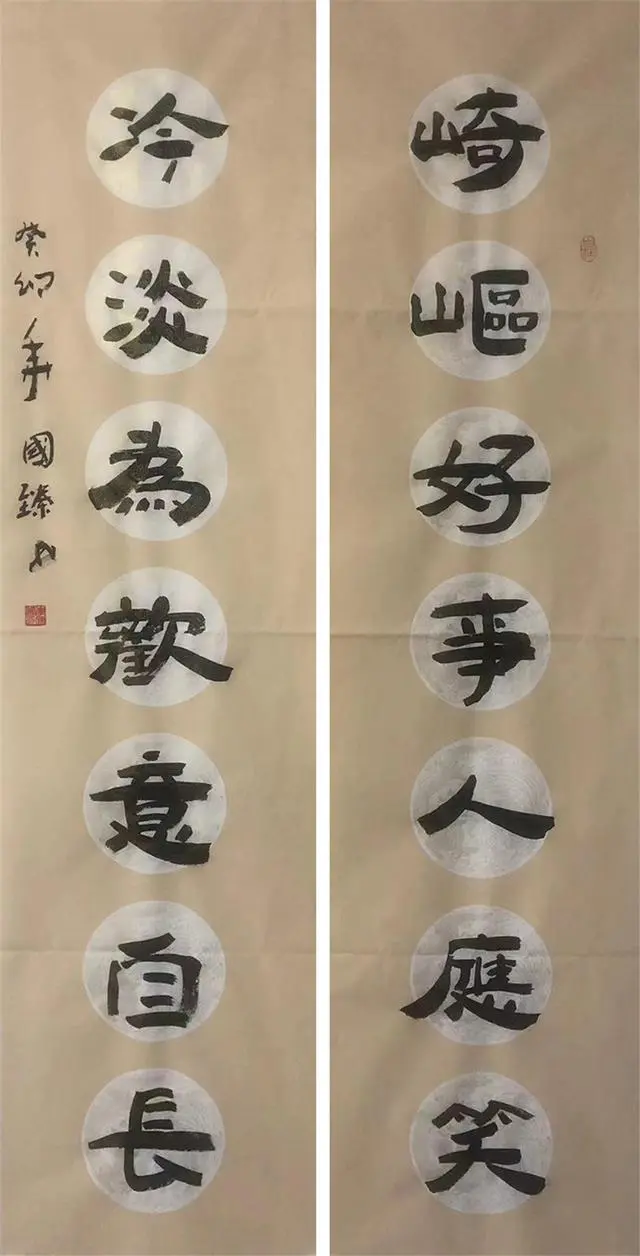 崎嶇好事人應笑
冷淡為歡意自長
癸卯年國臻書